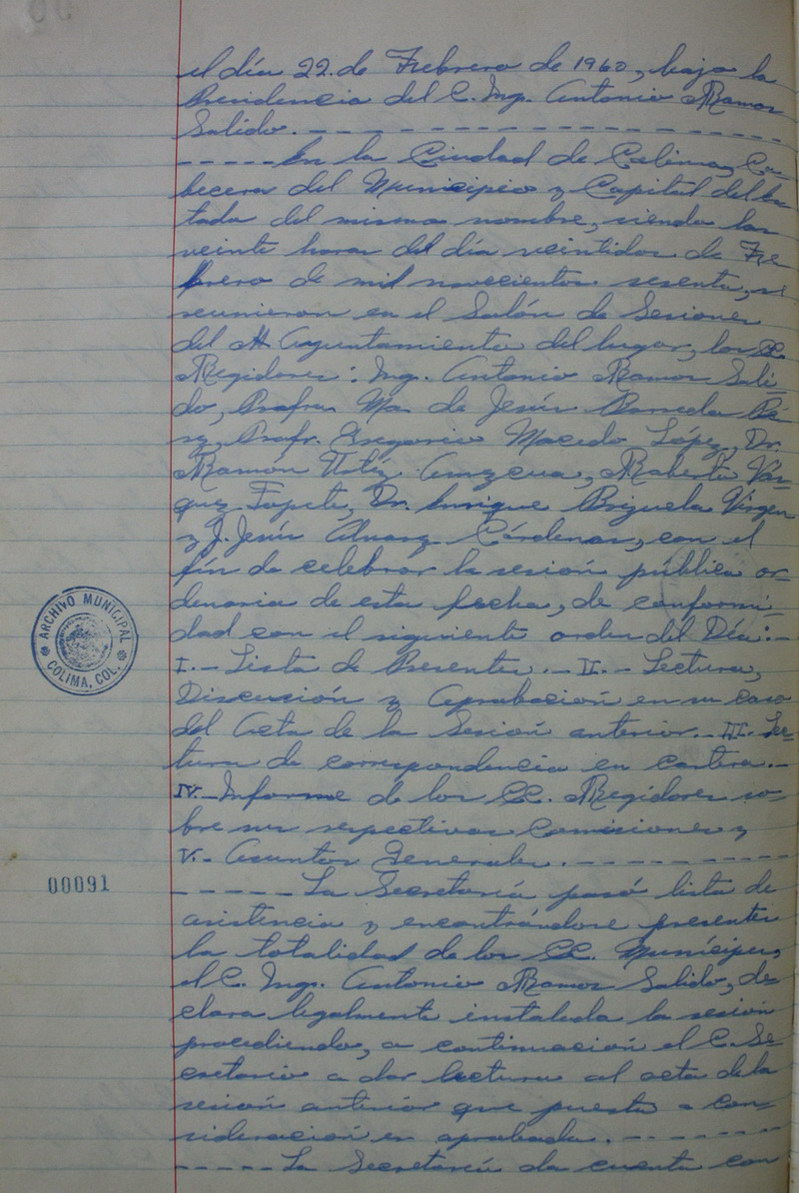 el día 22 de Febrero de 1960, bajo la
Presidencia del C. Ing. Antonio Ramos
Salido. - - - - - - - - - - - - - - -
- - - - - En la Ciudad de Colima, Ca-
becera del Municipio y Capital del Es-
tado del mismo nombre, siendo las
veinte horas del día veintidos de Fe-
brero de mil novecientos sesenta, se
reunieron en el Salón de Sesiones
del H. Ayuntamiento del lugar, los CC.
Regidores: Ing. Antonio Ramos Sali-
do, Profra. Ma. de Jesús Barreda Pé-
rez, Profr. Gregorio Macedo López, Dr.
Ramón Ortiz Amezcua, Roberto Váz-
quez Topete, Dr. Enrique Brizuela Virgen
y J. Jesús Alvarez Cárdenas, con el
fin de celebrar la sesión pública or-
denaria de esta fecha, de conformi-
dad con el siguiente orden del Día: -
I. - Lista de Presentes. - II. - Lectura,
Discusión y Aprobación en su caso
del Acta de la Sesión anterior. - III. Lec-
tura de correspondencia en cartera. -
IV. - Informe de los CC. Regidores so-
bre sus respectivas Comisiones y
V. - Asuntos Generales. - - - - - - - -
- - - - - La Secretaría pasó lista de
asistencia y encontrándose presentes
la totalidad de los CC. Munícipes,
el C. Ing. Antonio Ramos Salido, de-
clara legalmente instalada la sesión
procediendo, a continuación el C. Se-
cretario a dar lectura al acta de la
sesión anterior que puesta a con-
sideración es aprobada. - - - - - - -
- - - - - La Secretaría da cuenta con
ARCHIVO MUNICIPAL
COLIMA, COL.
00091